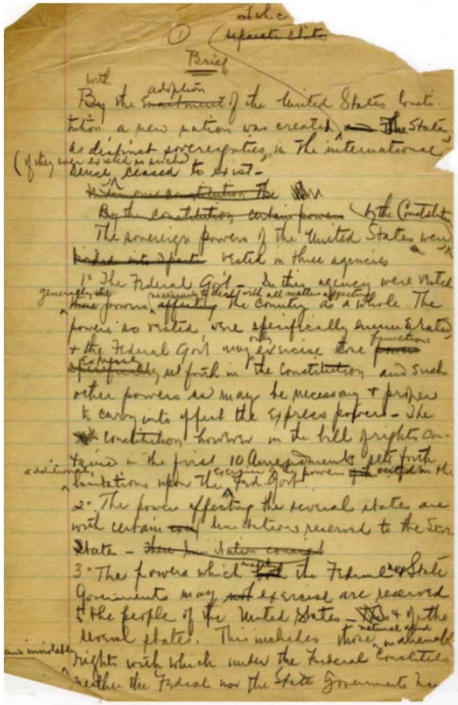 1
separate state
Brief
with adoption
By the enactment of the United States Consti-
tution a new nation was created, and The States
as distinct sovereignties, in the international
(if they ever existed as such)
sense, ceased to exist -
By the constitution certain powers
The sovereign powers of the United States were by the Constitution
vested in three agencies
1° The Federal Gov't - In this agency were vested
generally the those powers necessary to deal with all matters affecting the Country as a whole. The
powers so vested were specifically enumerated
& the Federal Gov't may only exercise those powers functions
specifically expressly set forth in the Constitution and such
other powers as may be necessary & proper
to carry into effect the express powers - The
constitution however in the bill of rights con-
tained in the first 10 Amendments sets forth
additional limitations upon the Fed Gov't exercising the powers
2° The powers affecting the several states are
with certain limitations reserved to the
State - These limitation
3° The powers which the Federal or State
Governments may not exercise are reserved
to the people of the United States - & of the
several states. This includes those natural and inalienable
and inviolable rights with which under the Federal Constitution
neither the Federal nor the State Governments